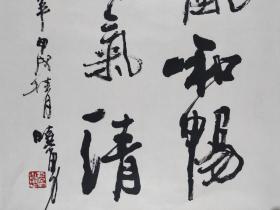 風和暢
氣清
年甲戌桂月